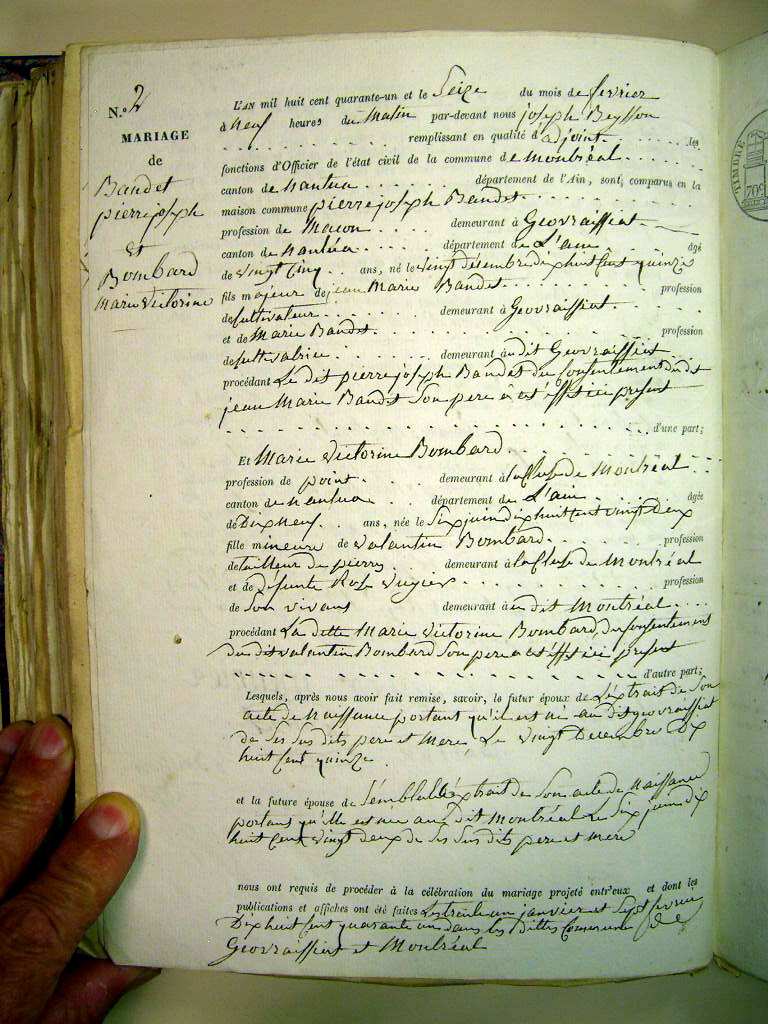 N.o 2
MARIAGE
de
Baudet
pierre joseph
et
Bombard
Marie Victorine
L'AN mil huit cent quarante-un et le Seize du mois de fevrier
à Neuf heures du Matin par-devant nous joseph Beysson
remplissant en qualité d'adjoint les
fonctions d'Officier de l'état civil de la commune de Montréal
canton de Nantua département de l'Ain, sont comparus en la
maison commune pierre joseph Baudet
profession de Macon demeurant à Geovraissiat
canton de Nantua département de L'ain âgé
de vingt cinq ans, né le vingt décembre dix huit Cent quinze
fils majeur de jean Marie Baudet profession
de Cultivateur demeurant à Geovraissiat
et de Marie Baudet profession
de Cultivatrice demeurant audit Geovraissiat
procédant Le dit pierre joseph Baudet du Consentement dudit
jean Marie Baudet Son pere à cet effet ici present
d'une part;
Et Marie Victorine Bombard
profession de point demeurant à la Cluse de Montréal
canton de Nantua département de L'ain âgée
de Dix Neuf ans, née le Six juin dix huit Cent vingt deux
fille mineure de Valentin Bombard profession
de tailleur de pierre demeurant à la Cluse de Montréal
et de défunte Rose profession
de Son vivant demeurant à dit Montréal
procédant La dette Marie Victorine Bombard, du Consentement
du dit Valentin Bombard Son pere à cet effet ici present
d'autre part;
Lesquels, après nous avoir fait remise, savoir, le futur époux de L'extrait de Son
acte de Naissance portant qu'il est né au dit geovraissiat
de Ses Sus dits pere et Mere, Le vingt Decembre Dix
huit Cent quinze.
et la future épouse de Semblable extrait de Son acte de Naissance
portant qu'elle est nee au dit Montréal Le Six juin dix
huit Cent vingt deux de Ses Sus dits pere et mere
nous ont requis de procéder à la célébration du mariage projeté entr'eux et dont les
publications et affiches ont été faites Les trente un janvier et Sept fevrier
Dix huit Cent quarante un dans les Dittes Commune de
Geovraissiat et Montréal
TIMBRE